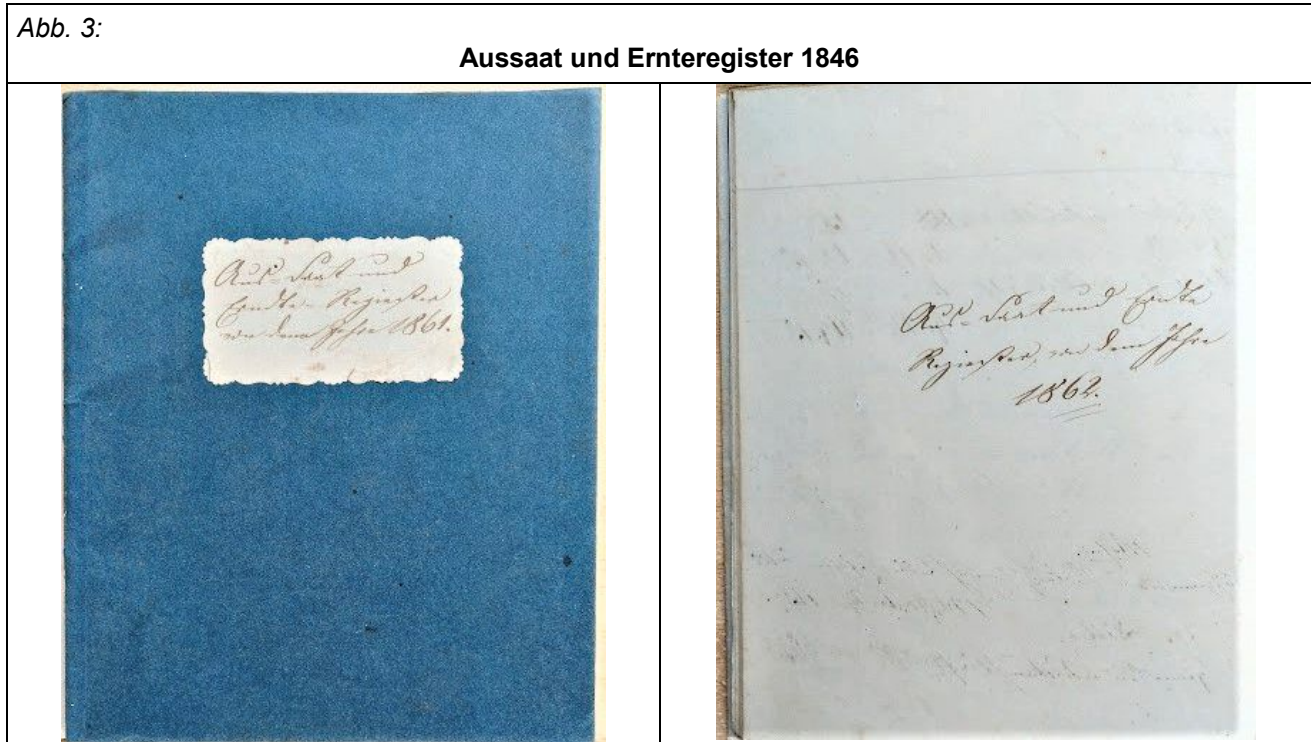 Abb. 3:
Aussaat und Ernteregister 1846
Aus-Saat und
Erndte-Regiester
von dem Jahre 1861.
Aus-Saat und Erndte
Regiester, von dem Jahre
1862.